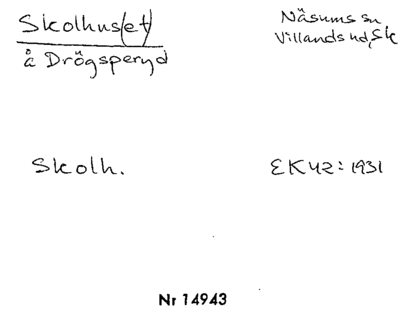 Skolhus(et)
å Drögsperyd
Näsums sn
Villands hd, Sk
Skolh.
EK42: 1931
Nr 14943